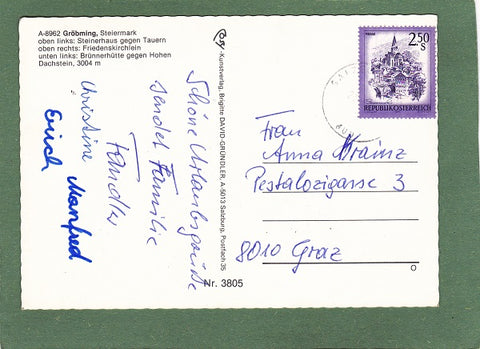 A-8962 Gröbming, Steiermark
oben links: Steinerhaus gegen Tauern
oben rechts: Friedenskirchlein
unten links: Brünnerhütte gegen Hohen
Dachstein, 3004 m
Schöne Urlaubsgrüße
sendet Familie
Fandler
Christine
Erich Manfred
-Kunstverlag, Brigitte DAVID-GRÜNDLER, A-5013 Salzburg, Postfach 35
Nr. 3805
2.50
S
REPUBLIK ÖSTERREICH
Frau
Anna Krainz
Pestalozigasse 3
8010 Graz